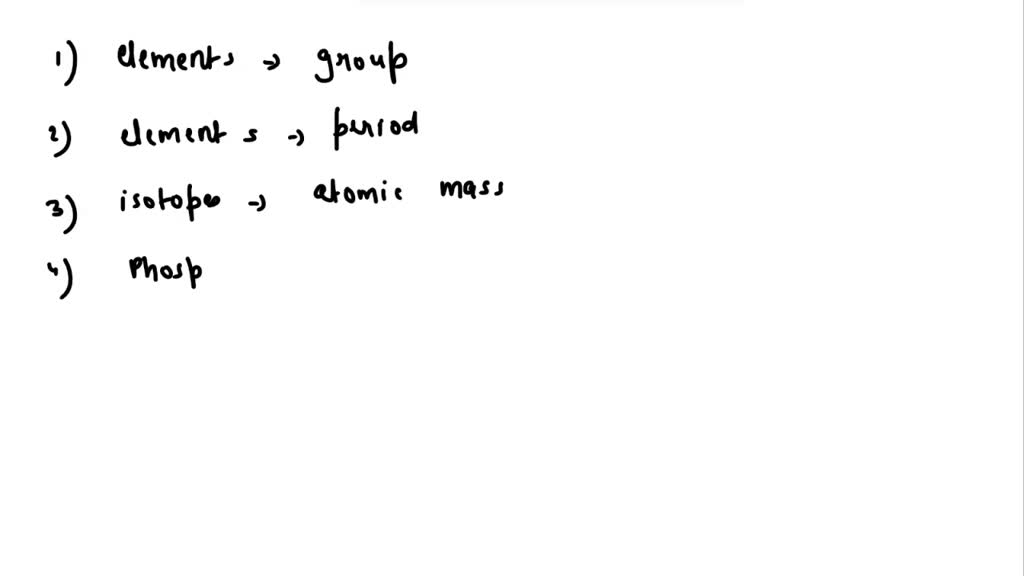 1) elements → group
2) elements → period
3) isotope → atomic mass
4) Phosp